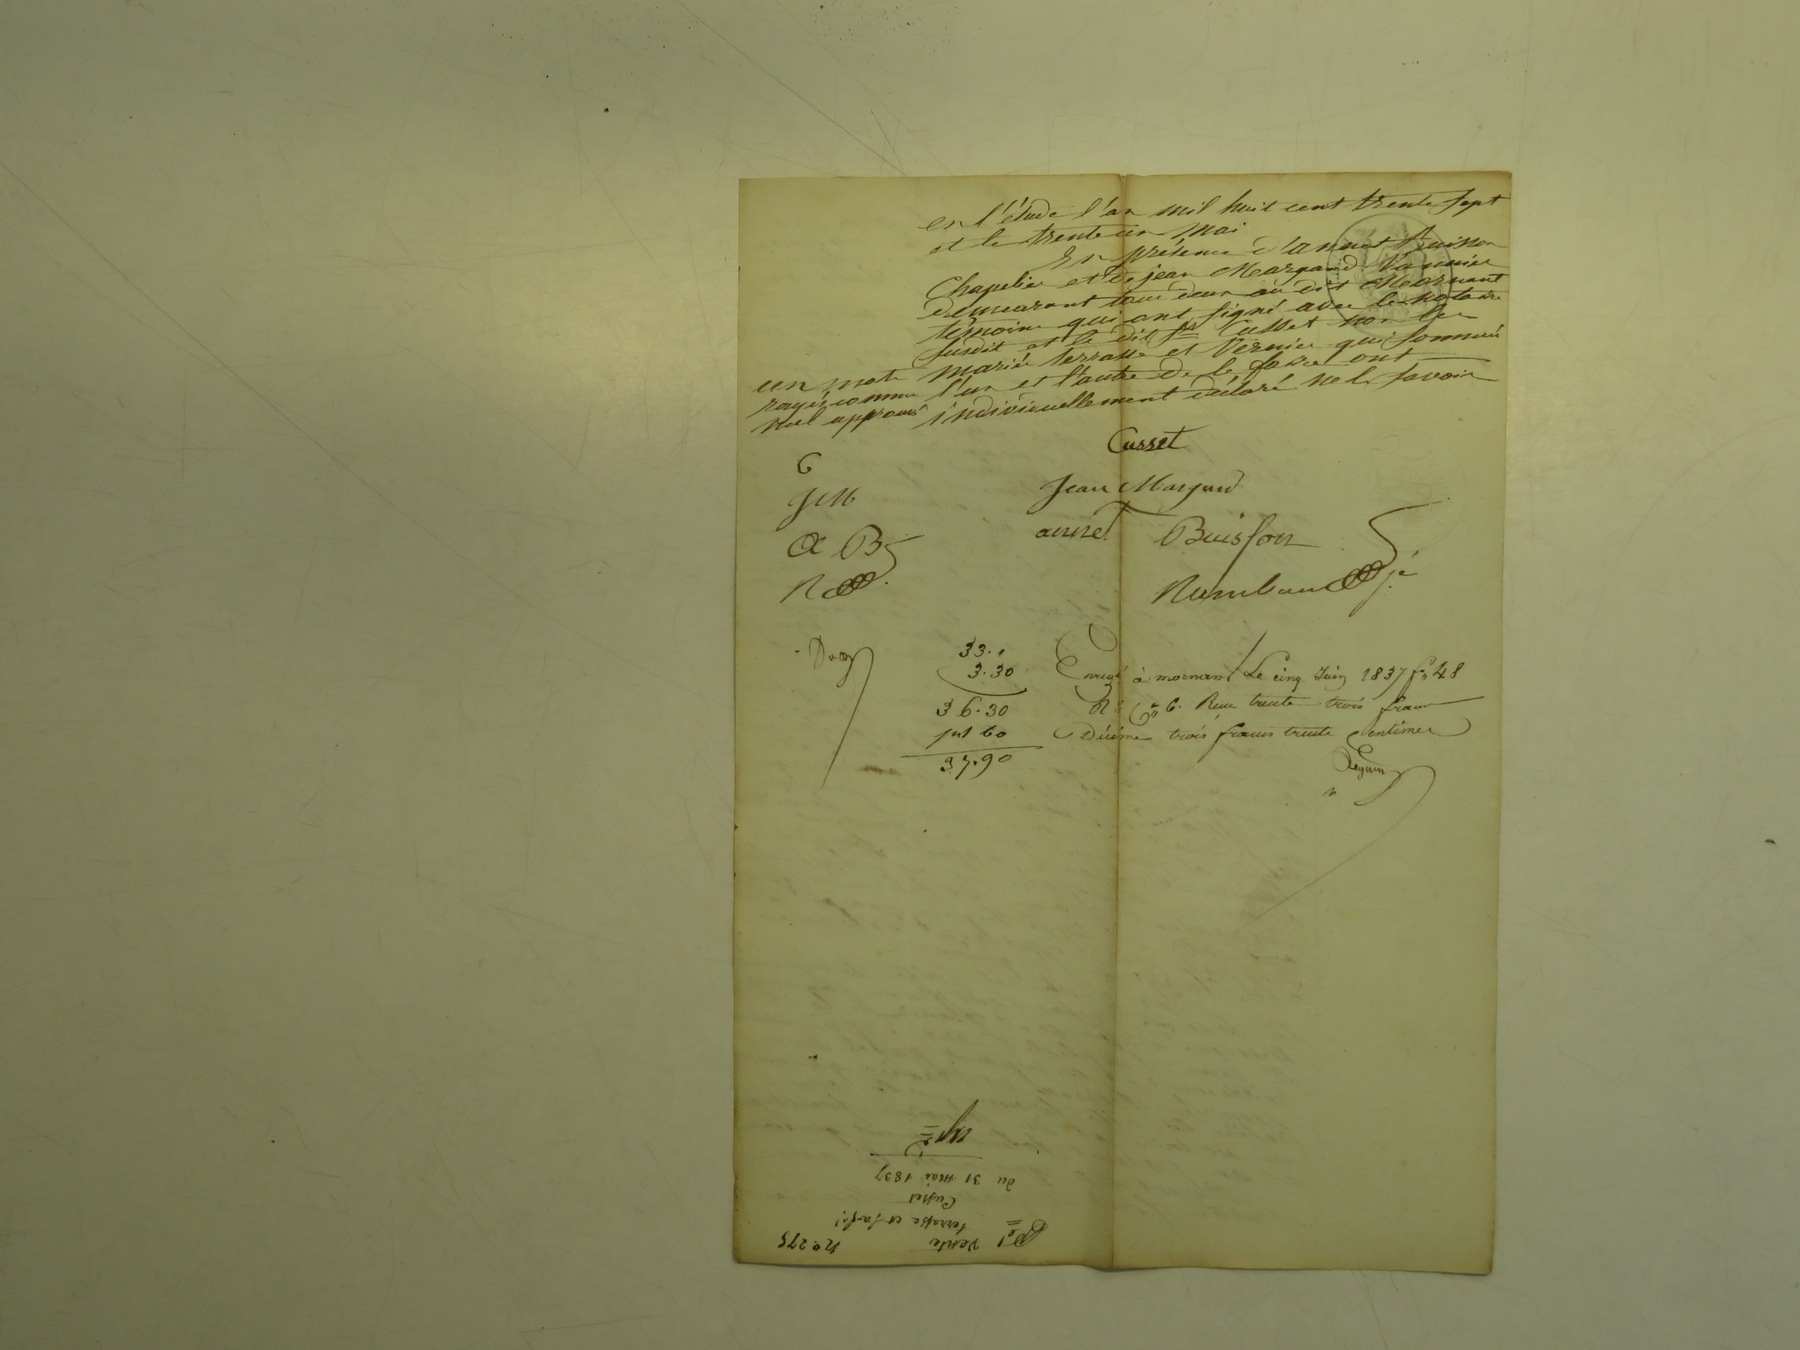 en l'étude l'an mil huit cent trente sept
et le trente un mai
En présence d'annet Buisson
Chapelier et de jean Margand
demeurant tous deux au dit Mornant
témoins qui ont signé avec le notaire
susdit et le dit Sr Cusset non les
mariés terrasse et Vernier qui sommés
l'un et l'autre de le faire ont
individuellement déclaré ne le savoir
un mot
rayé comme
nul approuvé
Cusset
C
Jean Margand
J M
annet Buisson
a B
Rambaud
R
33.
3.30
36.30
60
37.90
Enregé à mornant Le cinq Juin 1837 fo 48
Ro Ce 6. Reçu trente trois francs
Décime trois francs trente centimes
No. 275
Vente
terrasse et
Cusset
du 31 mai 1837